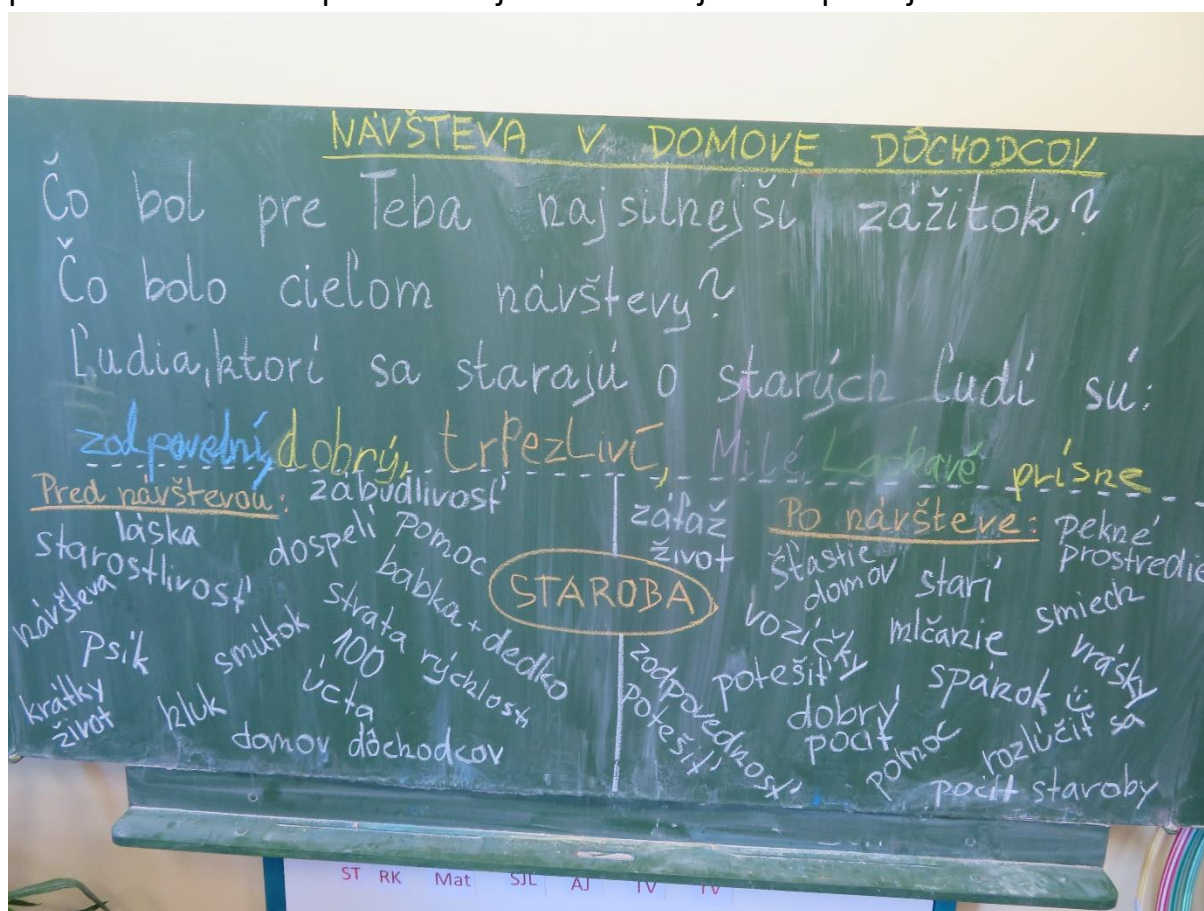 NÁVŠTEVA V DOMOVE DÔCHODCOV
Čo bol pre Teba najsilnejší zážitok?
Čo bolo cieľom návštevy?
Ľudia, ktorí sa starajú o starých ľudí sú:
zodpovední, dobrý, trPezLiví, Milé, Laskavé prísne
Pred návštevou:
zábudlivosť
láska
starostlivosť
dospelí
Pomoc
babka + dedko
návšteva
Psík
smútok
strata rýchlosti
100
úcta
krátky život
kluk
domov dôchodcov
STAROBA
záťaž
život
Po návšteve:
pekné prostredie
šťastie
domov
starí
smiech
vozíčky
mlčanie
vrásky
zodpovednosť
potešiť
potešiť
spánok
dobrý pocit
pomoc
rozlúčiť sa
pocit staroby
ST RK Mat SJL AJ TV TV